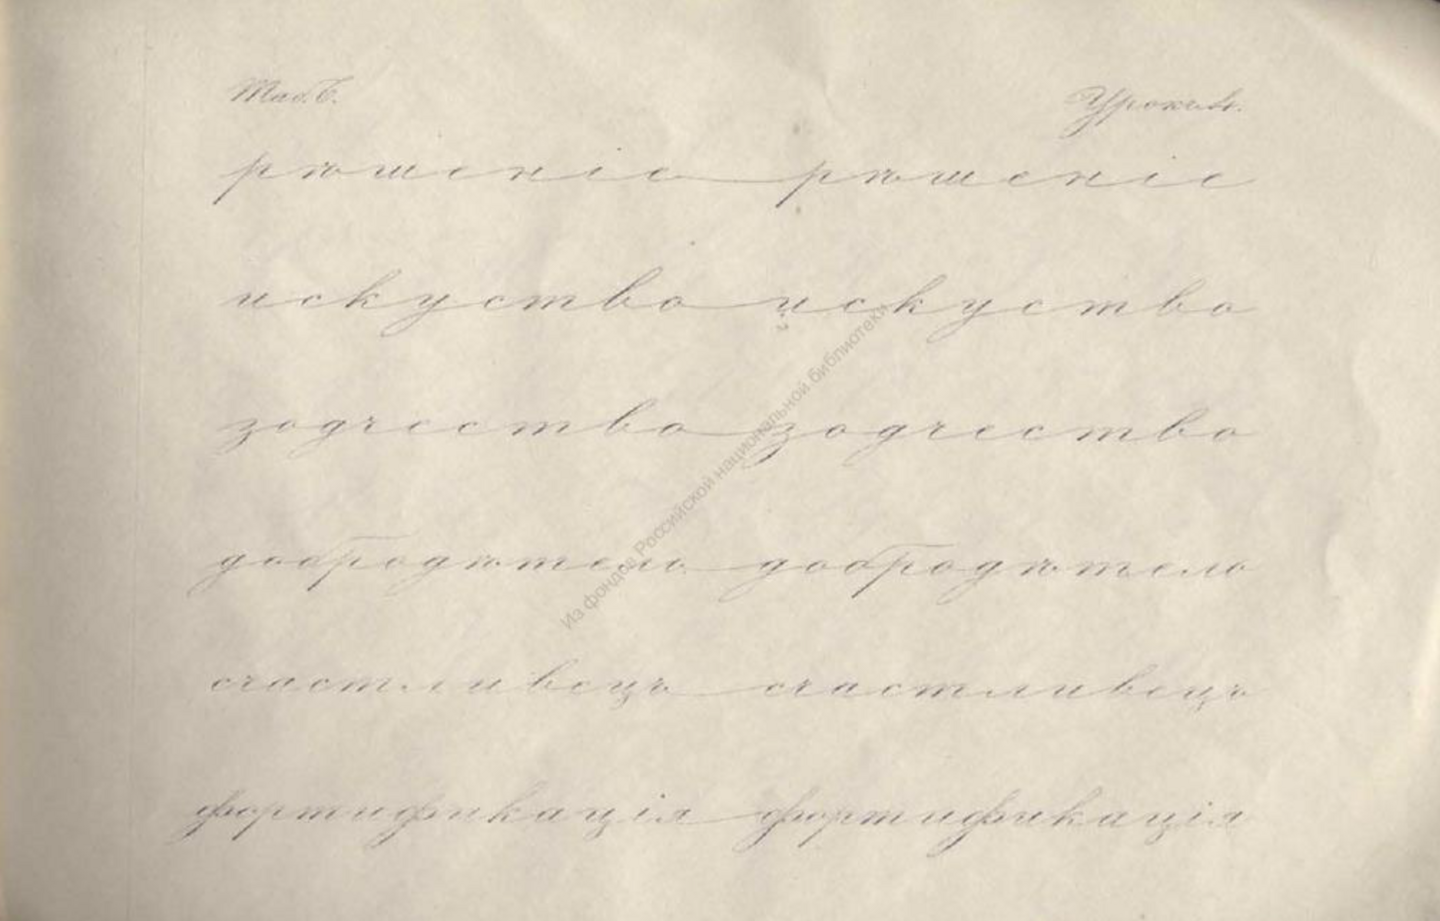 Таб. Б. Урокъ 4.
рѣшеніе рѣшеніе
искуство искуство
зодчество зодчество
добродѣтель добродѣтель
счастливецъ счастливецъ
фортификація фортификація
Из фондов Российской национальной библиотеки